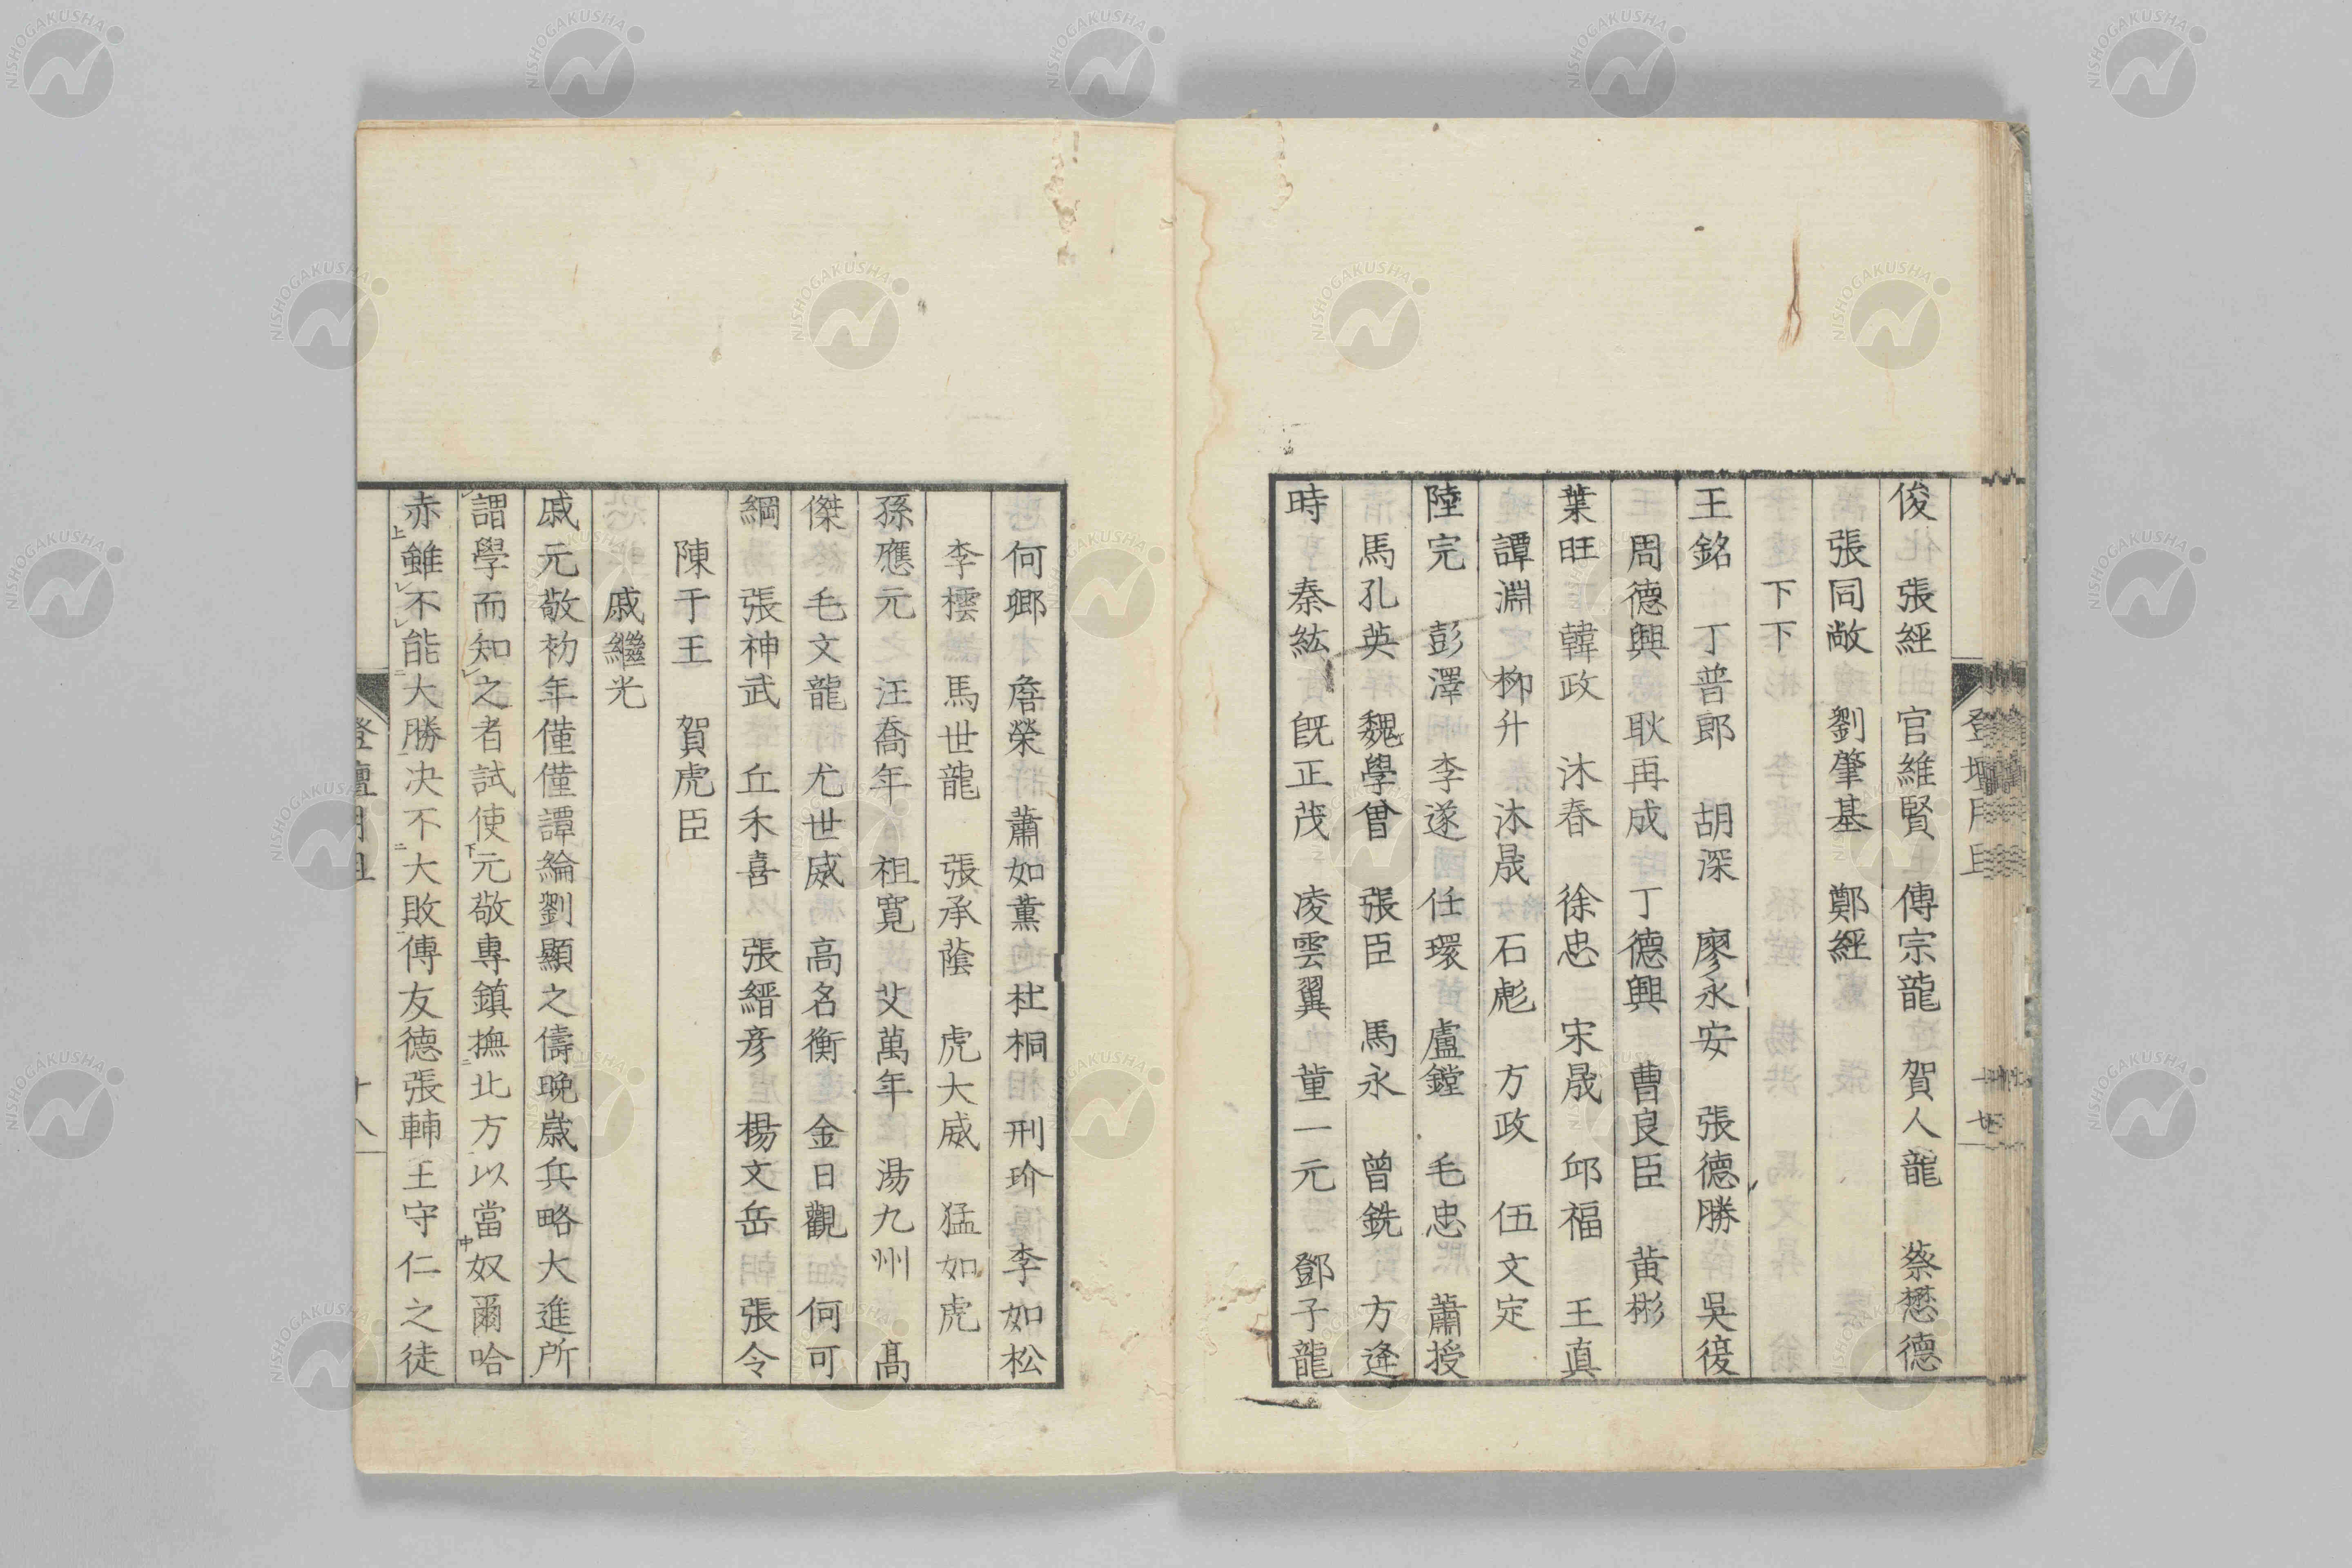 俊　張經　官維賢　傳宗龍　賀人龍　蔡懋德
張同敞　劉肇基　鄭經
下下
王銘　丁普郎　胡深　廖永安　張德勝　吳復
周德興　耿再成　丁德興　曹良臣　黃彬
葉旺　韓政　沐春　徐忠　宋晟　邱福　王真
譚淵　柳升　沐晟　石彪　方政　伍文定
陸完　彭澤　李遂　任環　盧鏜　毛忠　蕭授
馬孔英　魏學曾　張臣　馬永　曾銑　方逢
時　秦紘　旣正茂　凌雲翼　董一元　鄧子龍
何卿　詹榮　蕭如薰　杜桐　刑玠　李如松
李橒　馬世龍　張承蔭　虎大威　猛如虎
孫應元　汪喬年　祖寬　艾萬年　湯九州　高
傑　毛文龍　尤世威　高名衡　金日觀　何可
綱　張神武　丘禾喜　張縉彥　楊文岳　張令
陳于王　賀虎臣
戚繼光
戚元敬初年僅僅譚綸劉顯之儔晚歲兵略大進所
謂學而知之者試使元敬專鎮撫北方以當奴爾哈
赤雖不能大勝决不大敗傅友德張輔王守仁之徒
登壇月旦
十八
NISHOGAKUSHA